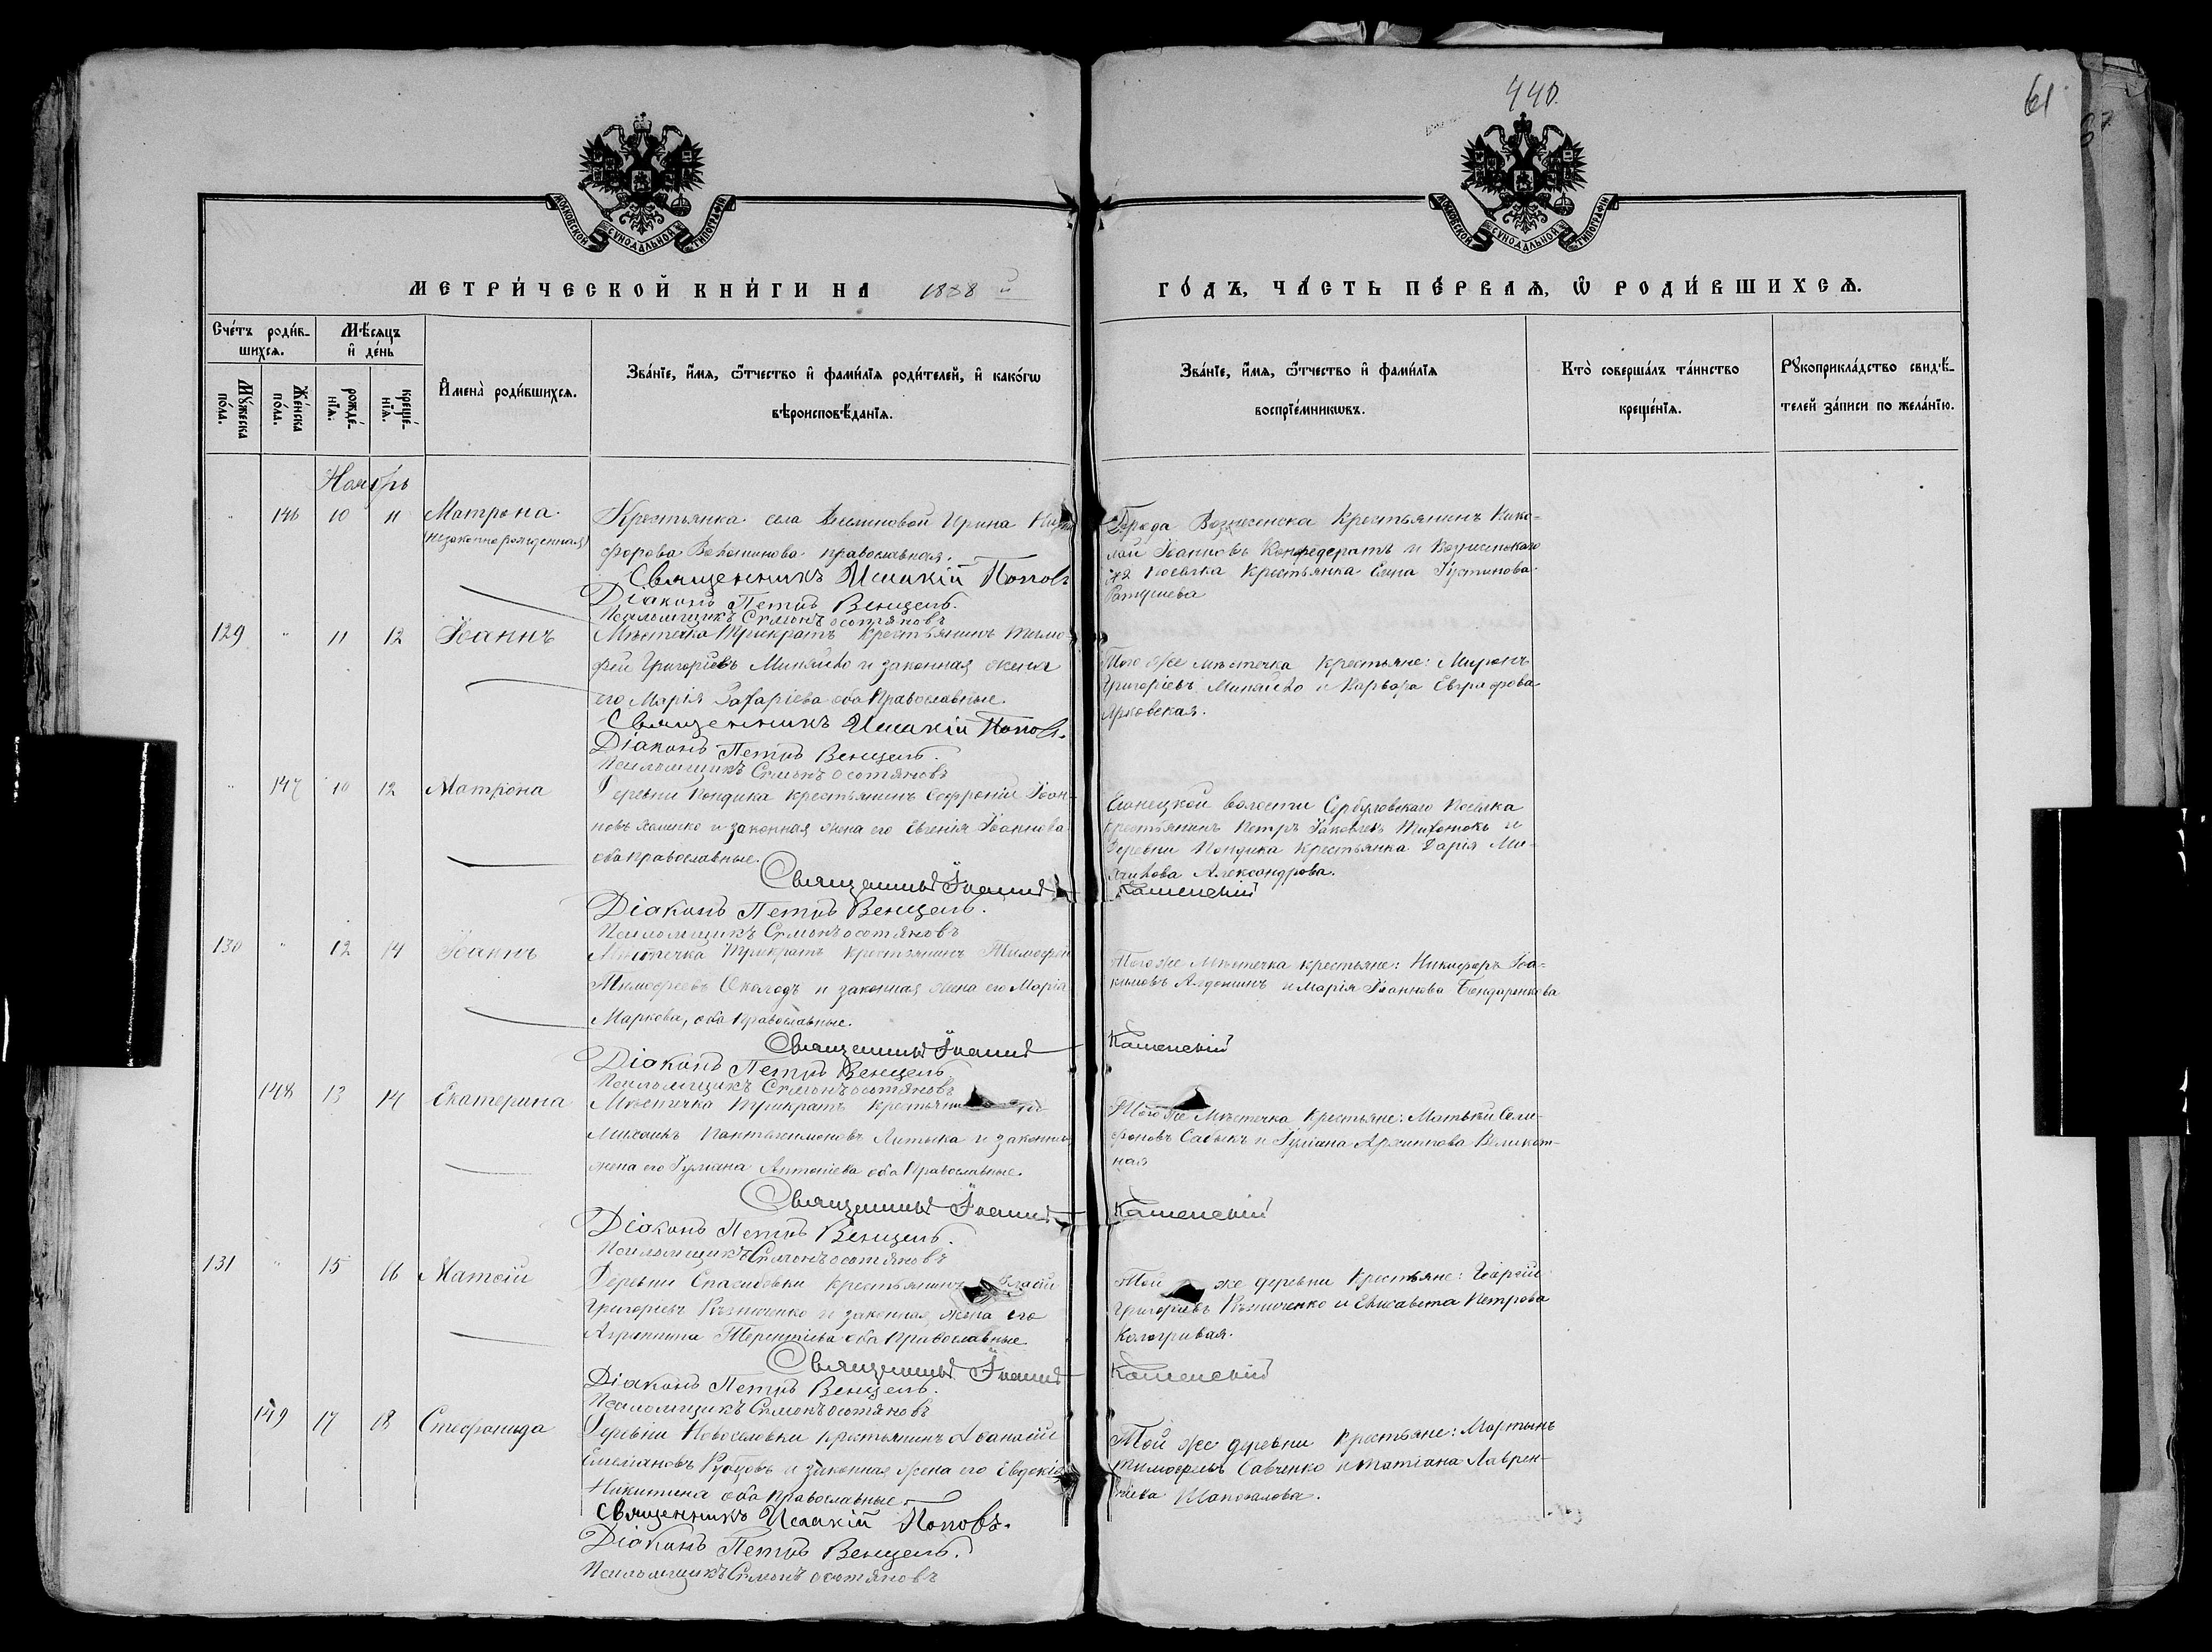 440.
61
МОСКОВСКОЙ СУНОДАЛЬНОЙ ТИПОГРАФІИ
МОСКОВСКОЙ СУНОДАЛЬНОЙ ТИПОГРАФІИ
МЕТРИ́ЧЕСКОЙ КНИ́ГИ НА 1888 й
ГО́ДЪ, ЧА́СТЬ ПЕ́РВАѦ, Ѡ РОДИ́ВШИХСѦ.
Сче́тъ роди́в-
шихсѧ.
Мѣ́сяцъ
и де́нь
Мꙋ́жеска по́ла.
Же́нска по́ла.
рожде́нїѧ.
креще́нїѧ.
Имена̀ роди́вшихсѧ.
Зва́нїе, и́мѧ, ѻ́тчество и фами́лїѧ роди́телей, и како́гѡ
вѣроисповѣ́данїѧ.
Зва́нїе, и́мѧ, ѻ́тчество и фами́лїѧ
воспрїе́мникѡвъ.
Кто̀ соверша́лъ та́инство
креще́нїѧ.
Рꙋкоприкла́дство свидѣ́-
телей за́писи по жела́нїю.
Ноябрь
146 10 11 Матрона.
(незаконнорожденная)
Крестьянка села Ирина
форова православная.
Священникъ Исаакій Поповъ
Діаконъ Петръ Венцель.
Псаломщикъ Симонъ
Города Вознесенска Крестьянинъ Нико-
лай Іоанновъ Конфедератъ и Вознесенскаго
№2 поселка Крестьянка Елена Іустинова
129 " 11 12 Іоаннъ
Мѣстечка Трикратъ крестьянинъ Тимо-
фей Григоріевъ Минайло и законная жена
его Марія Захаріева оба Православные.
Священникъ Исаакій Поповъ.
Діаконъ Петръ Венцель.
Псаломщикъ Симонъ
Того же мѣстечка крестьяне: Миронъ
Григоріевъ Минайло и Варвара Евграфова
Ярковская.
147 10 12 Матрона
Деревни Кондика крестьянинъ Софроній Іоан-
новъ и законная жена его Евгенія Іоаннова
оба православные.
Священникъ Іоаннъ Каменскій
Діаконъ Петръ Венцель.
Псаломщикъ Симонъ
Еланецкой волости Сербуловскаго Поселка
крестьянинъ Петръ Іаковлевъ Тихонюкъ и
Деревни Кондика Крестьянка Дарія
Александрова.
130 " 12 14 Іоаннъ
Мѣстечка Трикратъ крестьянинъ Тимофей
Тимофеевъ и законная жена его Марія
Маркова, оба православные.
Священникъ Іоаннъ Каменскій
Діаконъ Петръ Венцель
Псаломщикъ Симонъ
Того же Мѣстечка крестьяне: Никифоръ Іоа-
кимовъ и Марія Іоаннова Бондаренкова
148 13 14 Екатерина
Мѣстечка Трикратъ
Михаилъ Пантелеимоновъ и законная
жена его Іуліана Антоніева оба Православные.
Священникъ Іоаннъ Каменскій
Діаконъ Петръ Венцель.
Псаломщикъ Симонъ
Того же Мѣстечка Крестьяне: Матвѣй
и Іуліана
131 " 15 16 Матѳій
Деревни Спасибовки крестьянинъ
Григоріевъ и законная жена его
Агриппина Терентіева оба Православные
Священникъ Іоаннъ Каменскій
Діаконъ Петръ Венцель.
Псаломщикъ Симонъ
Той же деревни Крестьяне: Георгій
Григоріевъ и Елисавета Петрова
Кологривая.
149 17 18 Стефанида
Деревни Новоселовки крестьянинъ Аѳанасій
Емеліановъ и законная жена его Евдокія
Никитина оба православные.
Священникъ Исаакій Поповъ.
Діаконъ Петръ Венцель.
Псаломщикъ Симонъ
Той же деревни Крестьяне: Мартынъ
Тимофеевъ Савченко и Татіана Лаврен-
тіева Шаповалова.